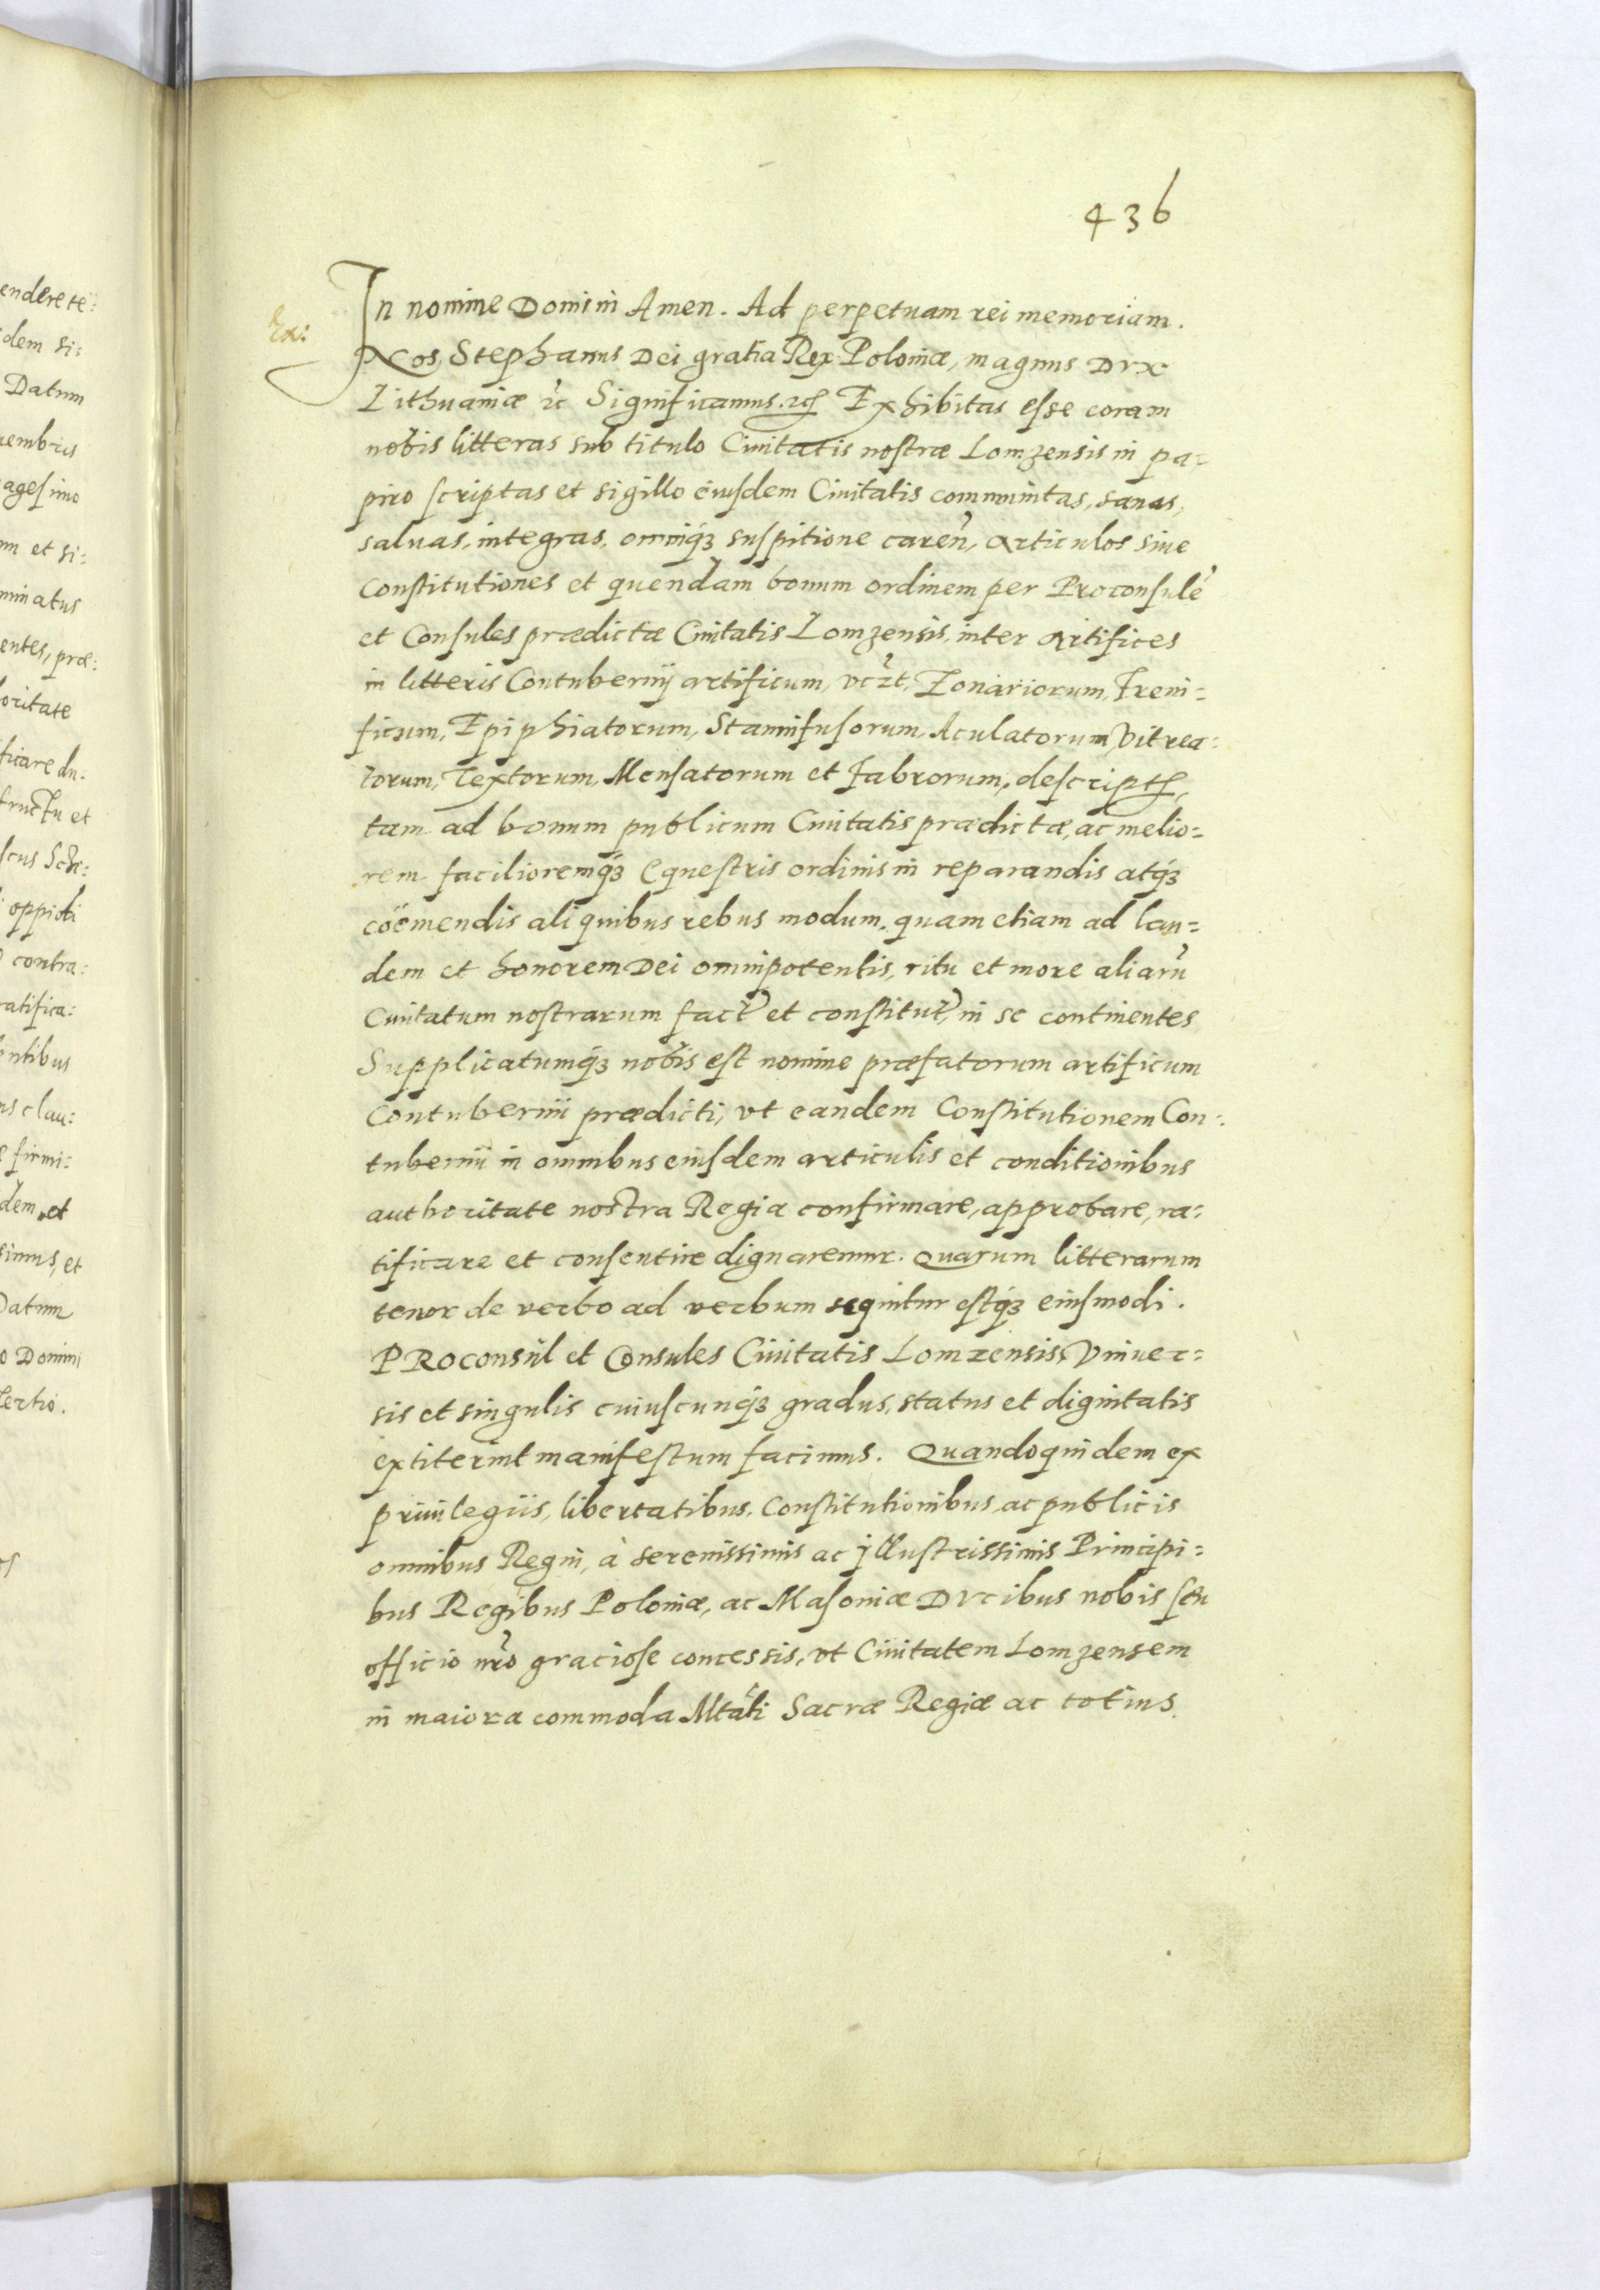 436
Ex:
In nomine Domini Amen. Ad perpetuam rei memoriam.
Nos Stephanus Dei gratia Rex Poloniæ, magnus Dvx
Lithuaniæ etc Significamus. etc Exhibitas esse coram
nobis litteras sub titulo Ciuitatis nostræ Lomzensis in pa=
piro scriptas et sigillo eiusdem Ciuitatis communitas, sanas,
saluas, integras, omniq3 suspitione caren, Articulos siue
Constitutiones et quendam bonum ordinem per Proconsulē
et Consules prædictæ Ciuitatis Lomzensis, inter Artifices
in litteris Contubernij artificum, vczt, Zonariorum, Freni=
ficum, Epiphiatorum, Stannifusorum, Aculatorum Vitrea=
torum, Textorum, Mensatorum et Fabrorum, descript,
tam ad bonum publicum Ciuitatis prædictæ, ac melio=
rem facilioremq3 Equestris ordinis in reparandis atq3
coëmendis aliquibus rebus modum, quam etiam ad lau=
dem et honorem Dei omnipotentis, ritu et more aliarū
Ciuitatum nostrarum fact et constitut, in se continentes
Supplicatumq3 nobis est nomine præfatorum artificum
Contubernii prædicti, vt eandem Constitutionem Con=
tubernii in omnibus eiusdem articulis et conditionibus
authoritate nostra Regia confirmare, approbare, ra=
tificare et consentire dignaremur. Quarum litterarum
tenor de verbo ad verbum sequitur estq3 eiusmodi.
PRoconsul et Consules Ciuitatis Lomzensis, Vniuer=
sis et singulis cuiuscunq3 gradus, status et dignitatis
extiterint manifestum facimus. Quandoquidem ex
priuilegiis, libertatibus, Constitutionibus ac publicis
omnibus Regni, à serenissimis ac illustrissimis Principi=
bus Regibus Poloniæ, ac Masoniæ Dvcibus nobis seu
officio nro graciose concessis, vt Ciuitatem Lomzensem
in maiora commoda Mtati Sacræ Regiæ ac totius